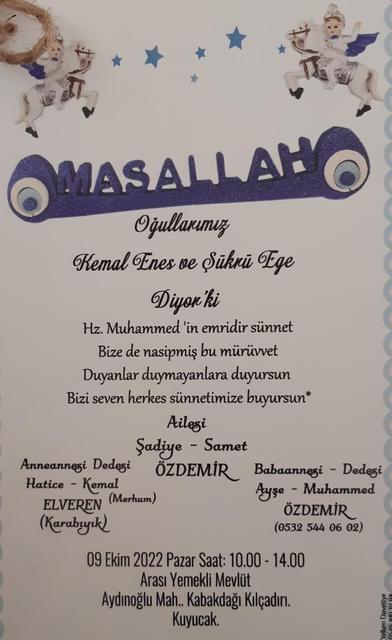 MAŞALLAH
Oğullarımız
Kemal Enes ve Şükrü Ege
Diyor'ki
Hz. Muhammed 'in emridir sünnet
Bize de nasipmiş bu mürüvvet
Duyanlar duymayanlara duyursun
Bizi seven herkes sünnetimize buyursun*
Ailesi
Şadiye - Samet
ÖZDEMİR
Anneannesi Dedesi
Hatice - Kemal
(Merhum)
ELVEREN
(Karabıyık)
Babaannesi - Dedesi
Ayşe - Muhammed
ÖZDEMİR
(0532 544 06 02)
09 Ekim 2022 Pazar Saat: 10.00 - 14.00
Arası Yemekli Mevlüt
Aydınoğlu Mah.. Kabakdağı Kılçadırı.
Kuyucak.